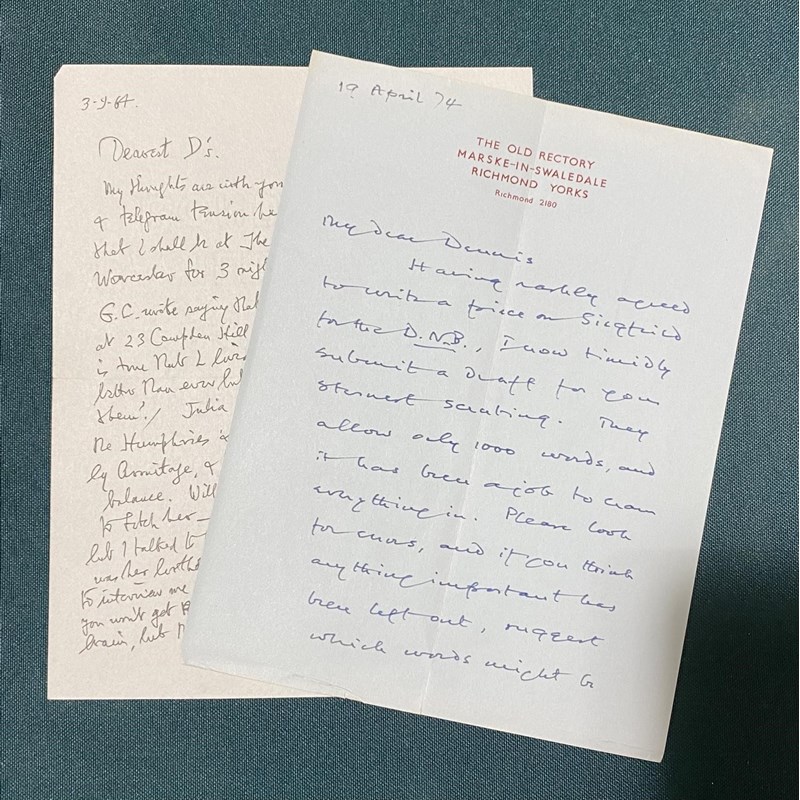 3-9-64.
Dearest D's.
My thoughts are with you
& telegram tension he
that I shall be at The
Worcester for 3 nigh
G.C. write saying that
at 23 Campden Hill
is true that I
better than ever but
them'./ Julia
the Humphries &
by Armitage, &
balance. Will
to fetch her —
but I talked to
was her
to interview me
you won't get
brain, but
19 April 74
THE OLD RECTORY
MARSKE-IN-SWALEDALE
RICHMOND YORKS
Richmond 2180
My dear Dennis
Having rashly agreed
to write a piece on Siegfried
for the D.N.B., I now timidly
submit a draft for your
sternest scrutiny. They
allow only 1000 words, and
it has been a job to cram
everything in. Please look
for errors, and if you think
anything important has
been left out, suggest
which words might be